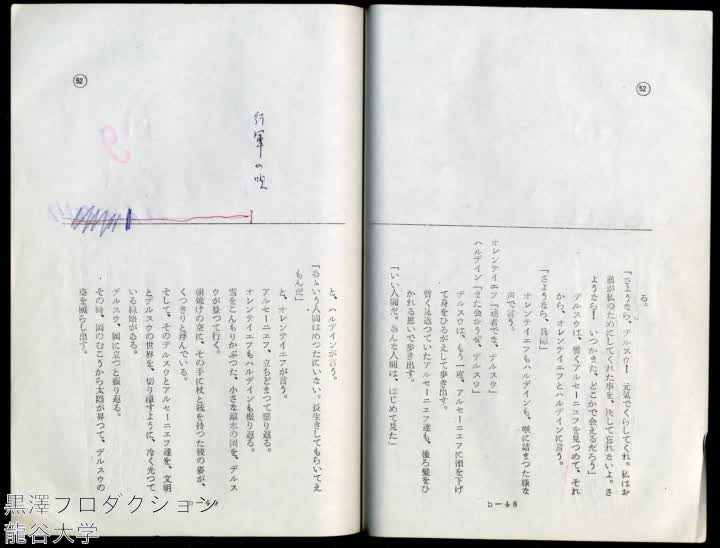 52
る。
「さようなら、デルスウ！　元気でくらしてくれ。私はお
前が私のためにしてくれた事を、決して忘れないよ。さ
ようなら！　いつかまた、どこかで会えるだろう」
デルスウは、暫くアルセーニエフを見つめて、それ
から、オレンテイエフとハルデインに言う。
「さようなら、兵隊」
オレンテイエフもハルデインも、喉に詰まつた様な
声で言う。
オレンテイエフ「達者でな、デルスウ」
ハルデイン「また会おうぜ、デルスウ」
デルスウは、もう一度、アルセーニエフに頭を下げ
て身をひるがえして歩き出す。
暫く見送つていたアルセーニエフ達も、後ろ髪をひ
かれる思いで歩き出す。
「いい人間だ。あんな人間は、はじめて見た」
b－48
52
行軍の唄
と、ハルデインが言う。
「あゝいう人間はめつたにいない。長生きしてもらいてえ
もんだ」
と、オレンテイエフが言う。
アルセーニエフ、立ちどまつて振り返る。
オレンテイエフもハルデインも振り返る。
雪をこんもりかぶつた、小さな灌木の岡を、デルス
ウが登つて行く。
朝焼けの空に、その手に杖と銃を持つた彼の姿が、
くつきりと浮んでいる。
そして、そのデルスウとアルセーニエフ達を、文明
とデルスウの世界を、切り離すように、冷く光つて
いる線路がある。
デルスウ、岡に立つと振り返る。
その時、岡のむこうから太陽が昇つて、デルスウの
姿を照らし出す。
黒澤プロダクション
龍谷大学